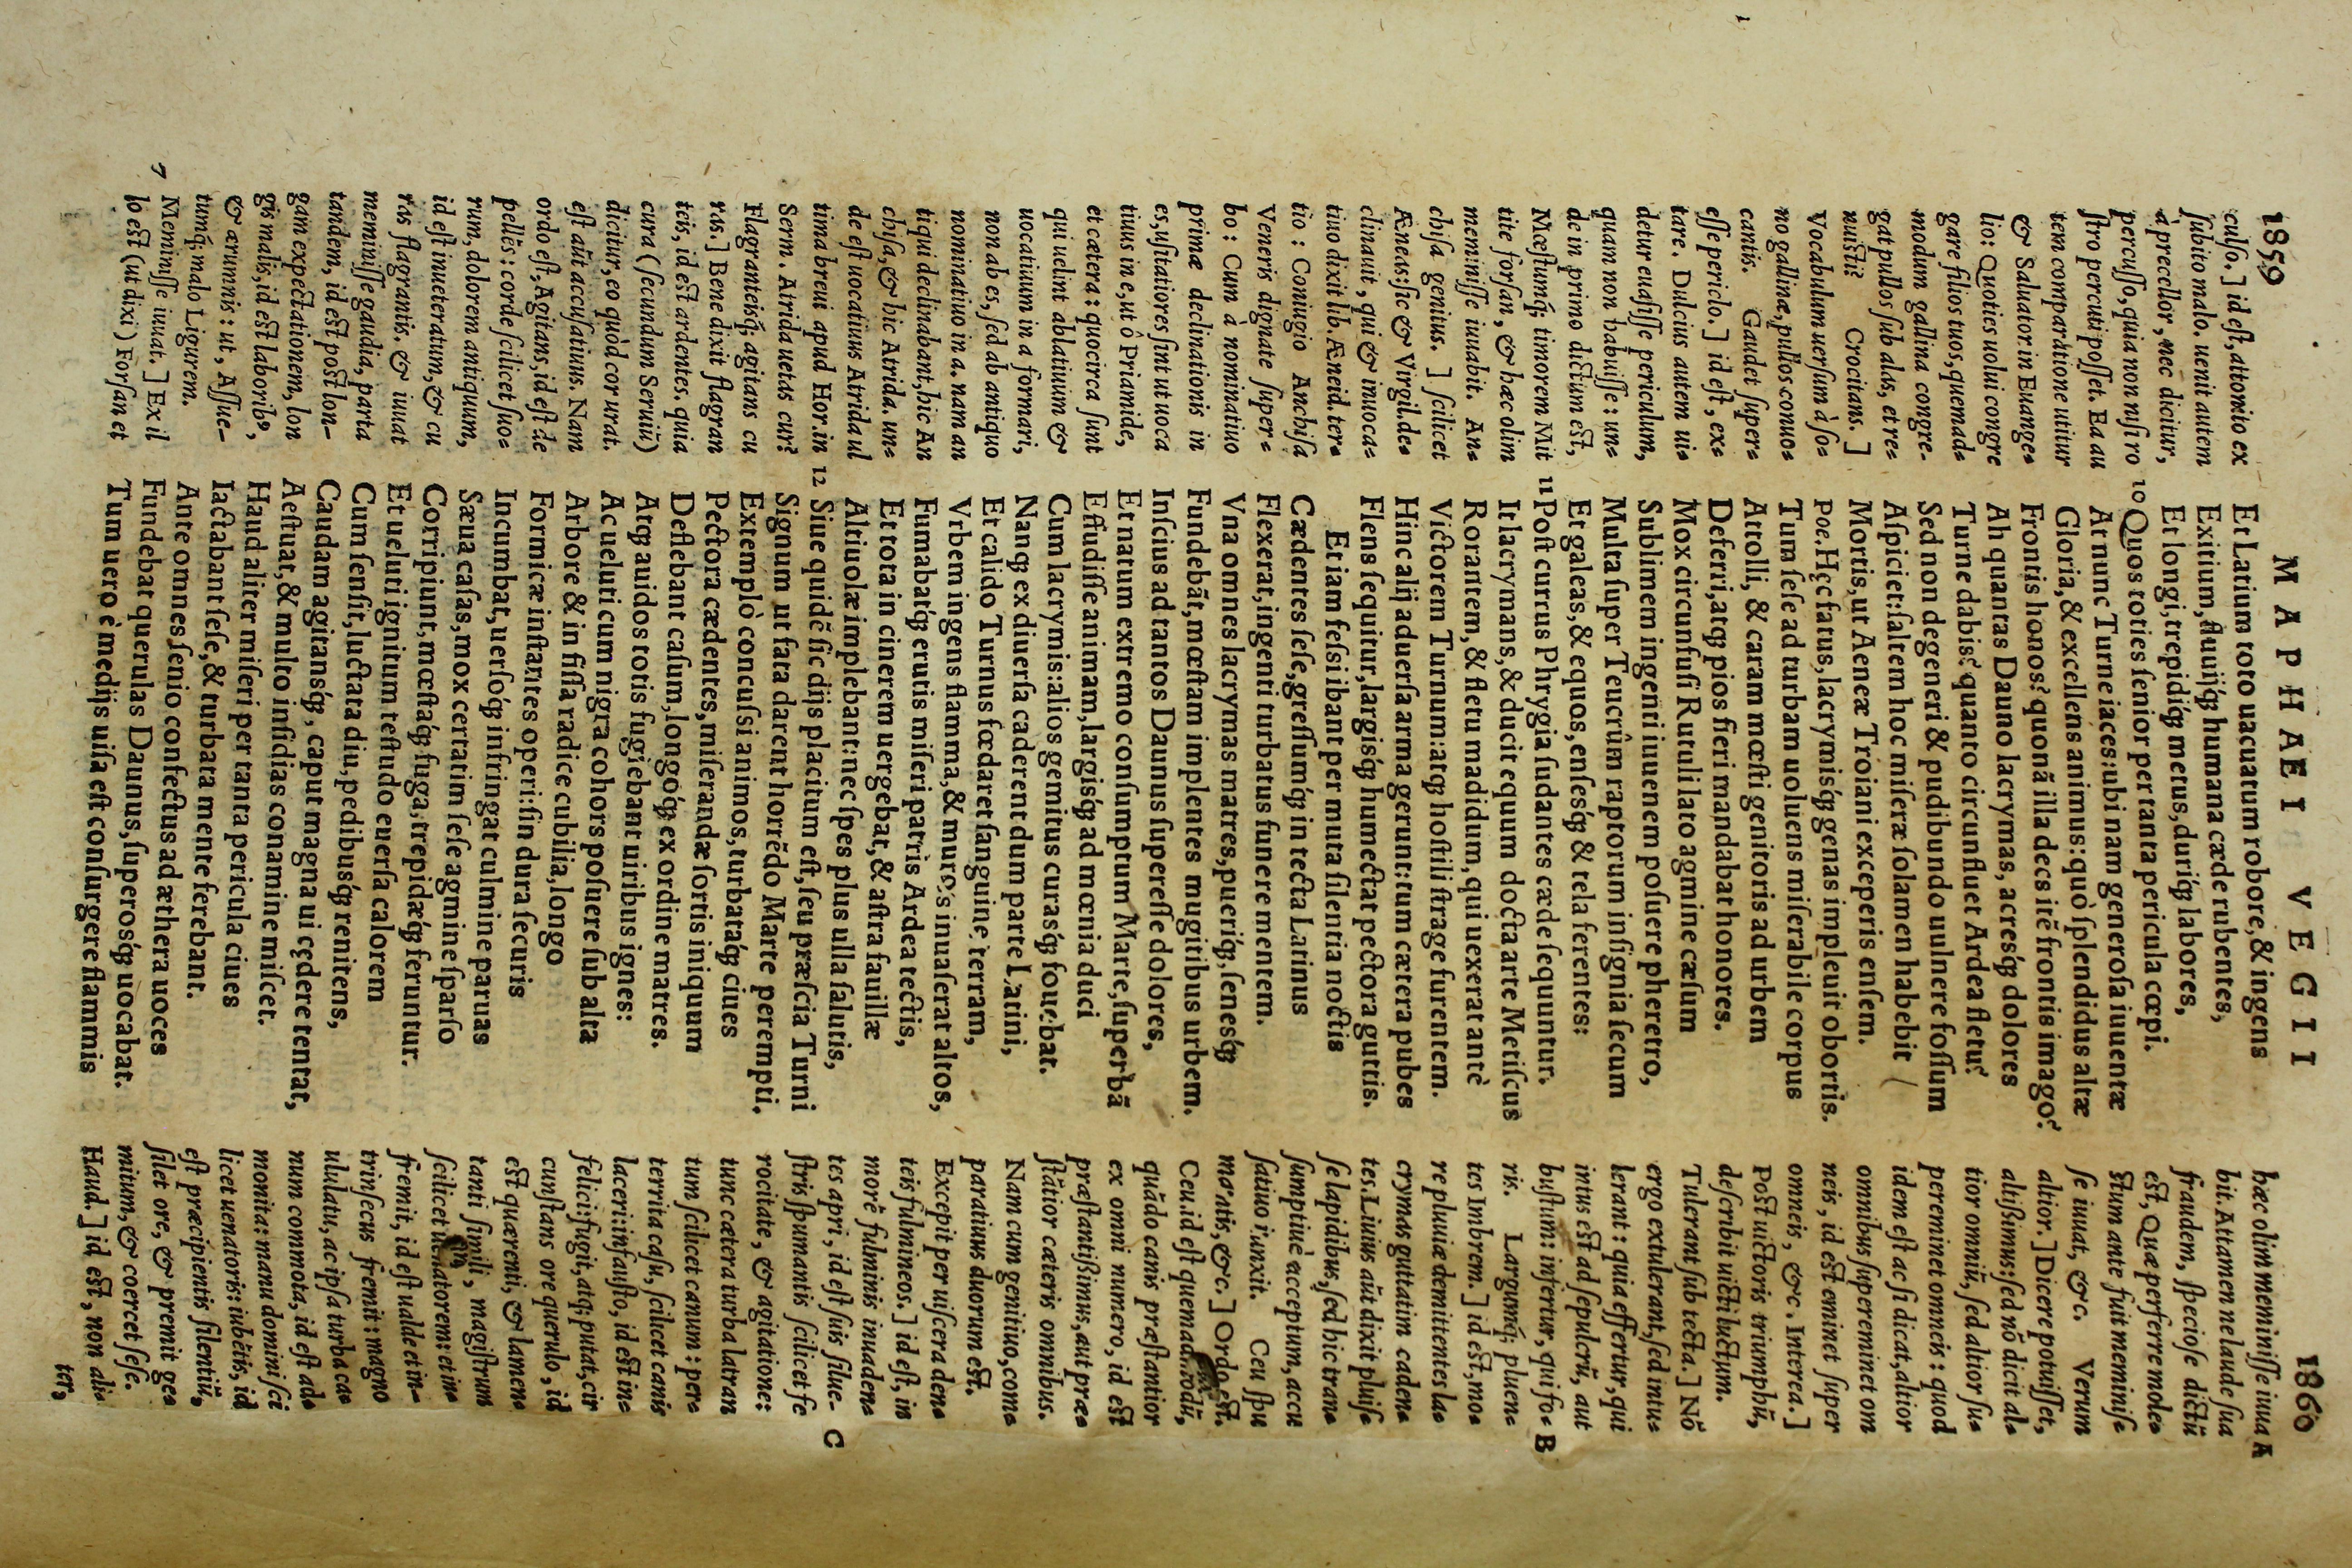 1859
MAPHAEI VEGII
1860
culſo.] id eſt, attonito ex
ſubito malo. uenit autem
à precellor, nec dicitur,
percuſſo, quia non niſi ro
ſtro percuti poſſet. Ea au
tem comparatione utitur
& Saluator in Euange-
lio: Quoties uolui congre
gare filios tuos, quemad-
modum gallina congre-
gat pullos ſub alas, et re-
nuiſti? Crocitans.]
Vocabulum uerſum à ſo-
no gallinæ, pullos conuo-
cantis. Gaudet ſuper-
eſſe periclo.] id eſt, ex-
tare. Dulcius autem ui-
detur euaſiſſe periculum,
quam non habuiſſe: un-
de in primo dictum eſt,
Mœſtumq́; timorem Mit
tite forſan, & hæc olim
meminiſſe iuuabit. An-
chiſa genitus.] ſcilicet
Æneas: ſic & Virgil. de-
clinauit, qui & inuoca-
tiuo dixit lib. Æneid. ter-
tio: Coniugio Anchiſa
Veneris dignate ſuper-
bo: Cum à nominatiuo
primæ declinationis in
es, uſitatiores ſint ut uoca
tiuus in e, ut ô Priamide,
et cætera: quocirca ſunt
qui uelint ablatiuum &
uocatiuum in a formari,
non ab es, ſed ab antiquo
nominatiuo in a. nam an
tiqui declinabant, hic An
chiſa, & hic Atrida. un-
de eſt uocatiuus Atrida ul
tima breui apud Hor. in
Serm. Atrida uetas cur?
Flagranteisq́; agitans cu
ras.] Bene dixit flagran
teis, id eſt ardentes. quia
cura (ſecundum Seruiũ)
dicitur, eo quòd cor urat.
eſt aũt accuſatiuus. Nam
ordo eſt, Agitans, id eſt de
pellẽs: corde ſcilicet ſuo-
rum, dolorem antiquum,
id eſt inueteratum, & cu
ras flagrantis. & iuuat
meminiſſe gaudia, parta
tandem, id eſt poſt lon-
gam expectationem, lon
gis malis, id eſt laborib⁹,
& ærumnis: ut, Aſſue-
tumq́; malo Ligurem.
Meminiſſe iuuat.] Ex il
lo eſt (ut dixi) Forſan et
Et Latium toto uacuatum robore, & ingens
Exitium, fluuijq́ꝫ humana cæde rubentes,
Et longi, trepidiq́ꝫ metus, duriq́ꝫ labores,
10 Quos toties ſenior per tanta pericula cœpi.
At nunc Turne iaces: ubi nam generoſa iuuentæ
Gloria, & excellens animus: quò ſplendidus altæ
Frontis honos? quonã illa decs itẽ frontis imago?
Ah quantas Dauno lacrymas, acresq́ꝫ dolores
Turne dabis? quanto circunfluet Ardea fletu?
Sed non degeneri & pudibundo uulnere foſſum
Aſpiciet: ſaltem hoc miſeræ ſolamen habebit
Mortis, ut Aeneæ Troiani exceperis enſem.
poe. Hęc fatus, lacrymisq́ꝫ genas impleuit obortis.
Tum ſeſe ad turbam uoluens miſerabile corpus
Attolli, & caram mœſti genitoris ad urbem
Deferri, atqꝫ pios fieri mandabat honores.
Mox circunfuſi Rutuli lato agmine cæſum
Sublimem ingenti iuuenem poſuere pheretro,
Multa ſuper Teucrûm raptorum inſignia ſecum
Et galeas, & equos, enſesq́ꝫ & tela ferentes:
11 Poſt currus Phrygia ſudantes cæde ſequuntur.
It lacrymans, & ducit equum docta arte Metiſcus
Rorantem, & fletu madidum, qui uexerat antè
Victorem Turnum: atqꝫ hoſtili ſtrage furentem.
Hinc alij aduerſa arma gerunt: tum cætera pubes
Flens ſequitur, largisq́ꝫ humectat pectora guttis.
Et iam feſsi ibant per muta ſilentia noctis
Cædentes ſeſe, greſſumq́ꝫ in tecta Latinus
Flexerat, ingenti turbatus funere mentem.
Vna omnes lacrymas matres, pueriq́ꝫ, ſenesq́ꝫ
Fundebãt, mœſtam implentes mugitibus urbem.
Inſcius ad tantos Daunus ſupereſſe dolores,
Et natum extremo conſumptum Marte, ſuperbã
Effudiſſe animam, largisq́ꝫ ad mœnia duci
Cum lacrymis: alios gemitus curasq́ꝫ fouebat.
Nanqꝫ ex diuerſa caderent dum parte Latini,
Et calido Turnus fœdaret ſanguine terram,
Vrbem ingens flamma, & muros inuaſerat altos,
Fumabatq́ꝫ erutis miſeri patris Ardea tectis,
Et tota in cinerem uergebat, & aſtra fauillæ
Altiuolæ implebant: nec ſpes plus ulla ſalutis,
12 Siue quidẽ ſic dijs placitum eſt, ſeu præſcia Turni
Signum ut fata darent horrẽdo Marte perempti.
Extemplò concuſsi animos, turbataq́ꝫ ciues
Pectora cædentes, miſerandæ ſortis iniquum
Deflebant caſum, longoq́ꝫ ex ordine matres.
Atqꝫ auidos totis fugiebant uiribus ignes:
Ac ueluti cum nigra cohors poſuere ſub alta
Arbore & in fiſſa radice cubilia, longo
Formicæ inſtantes operi: ſin dura ſecuris
Incumbat, uerſoq́ꝫ infringat culmine paruas
Sæua caſas, mox certatim ſeſe agmine ſparſo
Corripiunt, mœſtaq́ꝫ fuga, trepidæq́ꝫ feruntur.
Et ueluti ignitum teſtudo euerſa calorem
Cum ſenſit, luctata diu, pedibusq́ꝫ renitens,
Caudam agitansq́ꝫ, caput magna ui cędere tentat,
Aeſtuat, & multo inſidias conamine miſcet.
Haud aliter miſeri per tanta pericula ciues
Iactabant ſeſe, & turbata mente ferebant.
Ante omnes ſenio confectus ad æthera uoces
Fundebat querulas Daunus, ſuperosq́ꝫ uocabat.
Tum uero è medijs uiſa eſt conſurgere flammis
hæc olim meminiſſe iuua A
bit. Attamen ne laude ſua
fraudem, ſpecioſe dictũ
eſt, Quæ perferre mole-
ſtum ante fuit meminiſ-
ſe iuuat, &c. Verum
altior.] Dicere potuiſſet,
altißimus: ſed nõ dicit al-
tior omniũ, ſed altior ſu-
pereminet omneis: quod
idem eſt ac ſi dicat, altior
omnibus ſupereminet om
neis, id eſt eminet ſuper
omneis, &c. Interea.]
Poſt uictoris triumphũ,
deſcribit uicti luctum.
Tulerant ſub tecta.] Nõ
ergo extulerant, ſed intu-
lerant: quia effertur, qui
intus eſt ad ſepulcrũ, aut
buſtum: infertur, qui fo- B
ris. Largumq́; pluen-
tes Imbrem.] id eſt, mo-
re pluuiæ demittentes la-
crymas guttatim caden-
tes. Liuius aũt dixit pluiſ-
ſe lapidibus, ſed hic tran-
ſumptiuè acceptum, accu
ſatiuo iunxit. Ceu ſpu
mantis, &c.] Ordo eſt.
Ceu. id eſt quemadmodũ,
quãdo canis præſtantior
ex omni numero, id eſt
præſtantißimus, aut præ-
ſtãtior cæteris omnibus.
Nam cum genitiuo, com-
paratiuus duorum eſt.
Excepit per uiſcera den-
teis fulmineos.] id eſt, in
morẽ fulminis inuaden-
tes apri, id eſt ſuis ſilue- C
ſtris ſpumantis ſcilicet fe
rocitate, & agitatione:
tunc cætera turba latran
tum ſcilicet canum: per-
territa caſu, ſcilicet canis
laceri: infauſto, id eſt in-
felici: fugit, atq; putat, cir
cunſtans ore querulo, id
eſt quærenti, & lamen-
tanti ſimili, magiſtrum
ſcilicet uenatorem: et in-
fremit, id eſt ualde et in-
trinſecus fremit: magno
ululatu, ac ipſa turba ca-
num commota, id eſt ad-
monita: manu domini ſci
licet uenatoris: iubẽtis, id
eſt præcipientis ſilentiũ,
ſilet ore, & premit ge-
mitum, & coercet ſeſe.
Haud.] id eſt, non ali-
ter,